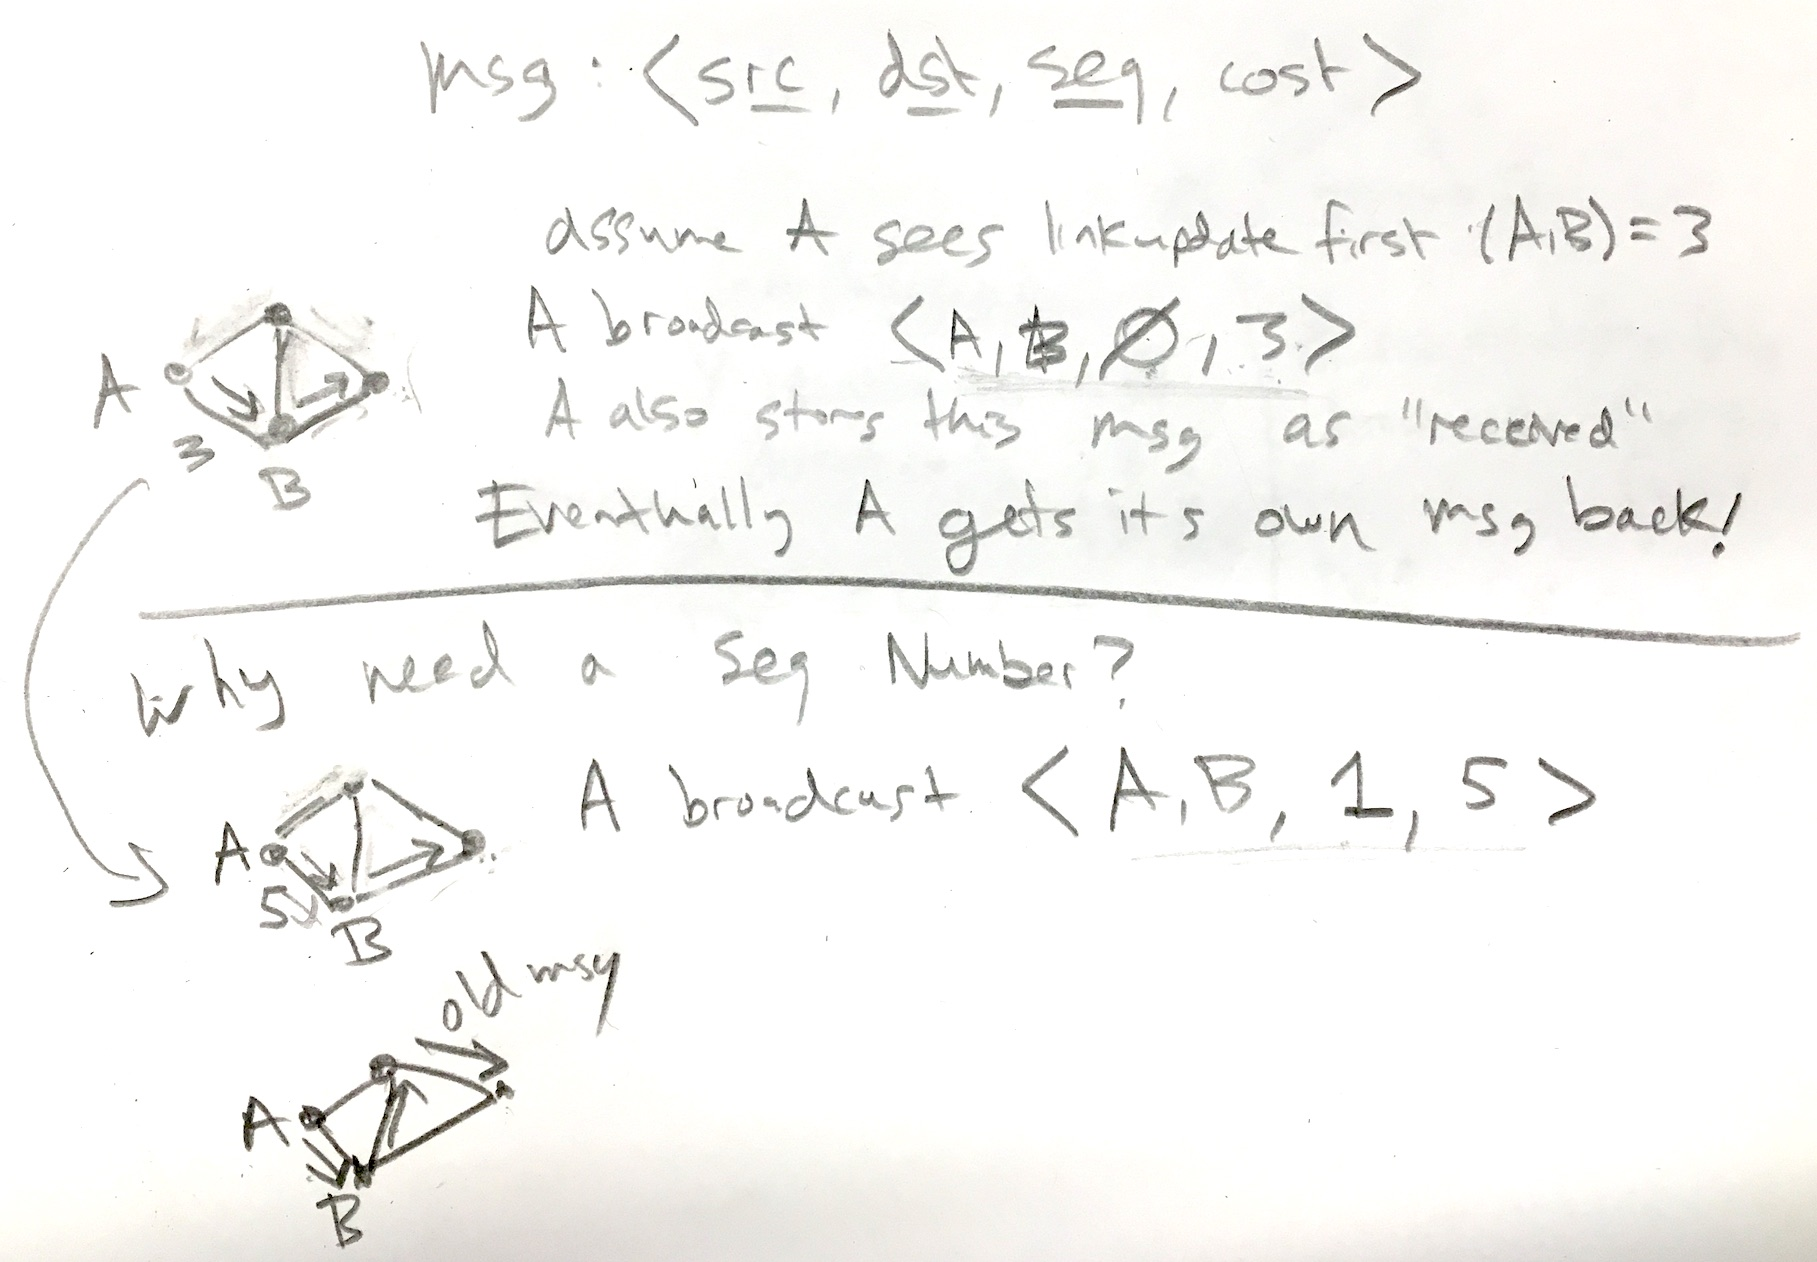 msg : <src, dst, seq, cost>
assume A sees linkupdate first (A,B)=3
A broadcast <A, B, Ø, 3>
A also stores this msg as "received"
Eventually A gets its own msg back!
A
3
B
Why need a Seq Number?
A broadcast <A, B, 1, 5>
A
5
B
old msg
A
B